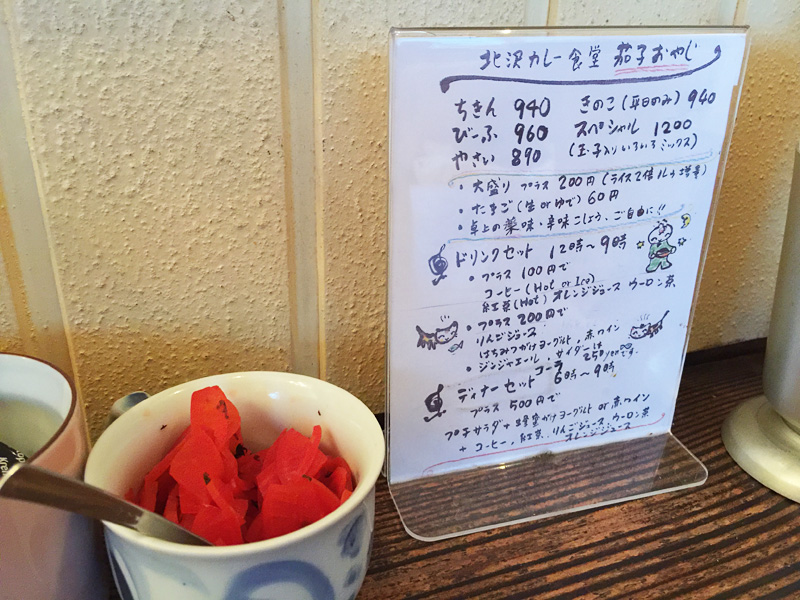 北沢カレー食堂 茄子おやじ
ちきん 940 きのこ(平日のみ) 940
びーふ 960 スペシャル 1200
やさい 890 (玉子入りいろいろミックス)
・大盛り プラス 200円(ライス2倍 ルゥ増量)
・たまご(生 or ゆで) 60円
・卓上の薬味・辛味こしょう、ご自由に!!
ドリンクセット 12時〜9時
・プラス 100円で
コーヒー(Hot or Ice)
紅茶(Hot) オレンジジュース ウーロン茶
・プラス 200円で
りんごジュース・
はちみつかけヨーグルト・赤ワイン
・ジンジャエール・サイダー・コーラ
は 250です。
ディナーセット 6時〜9時
プラス 500円で
プチサラダ + 蜂蜜がけヨーグルト or 赤ワイン
+ コーヒー、紅茶、りんごジュース、ウーロン茶
オレンジジュース